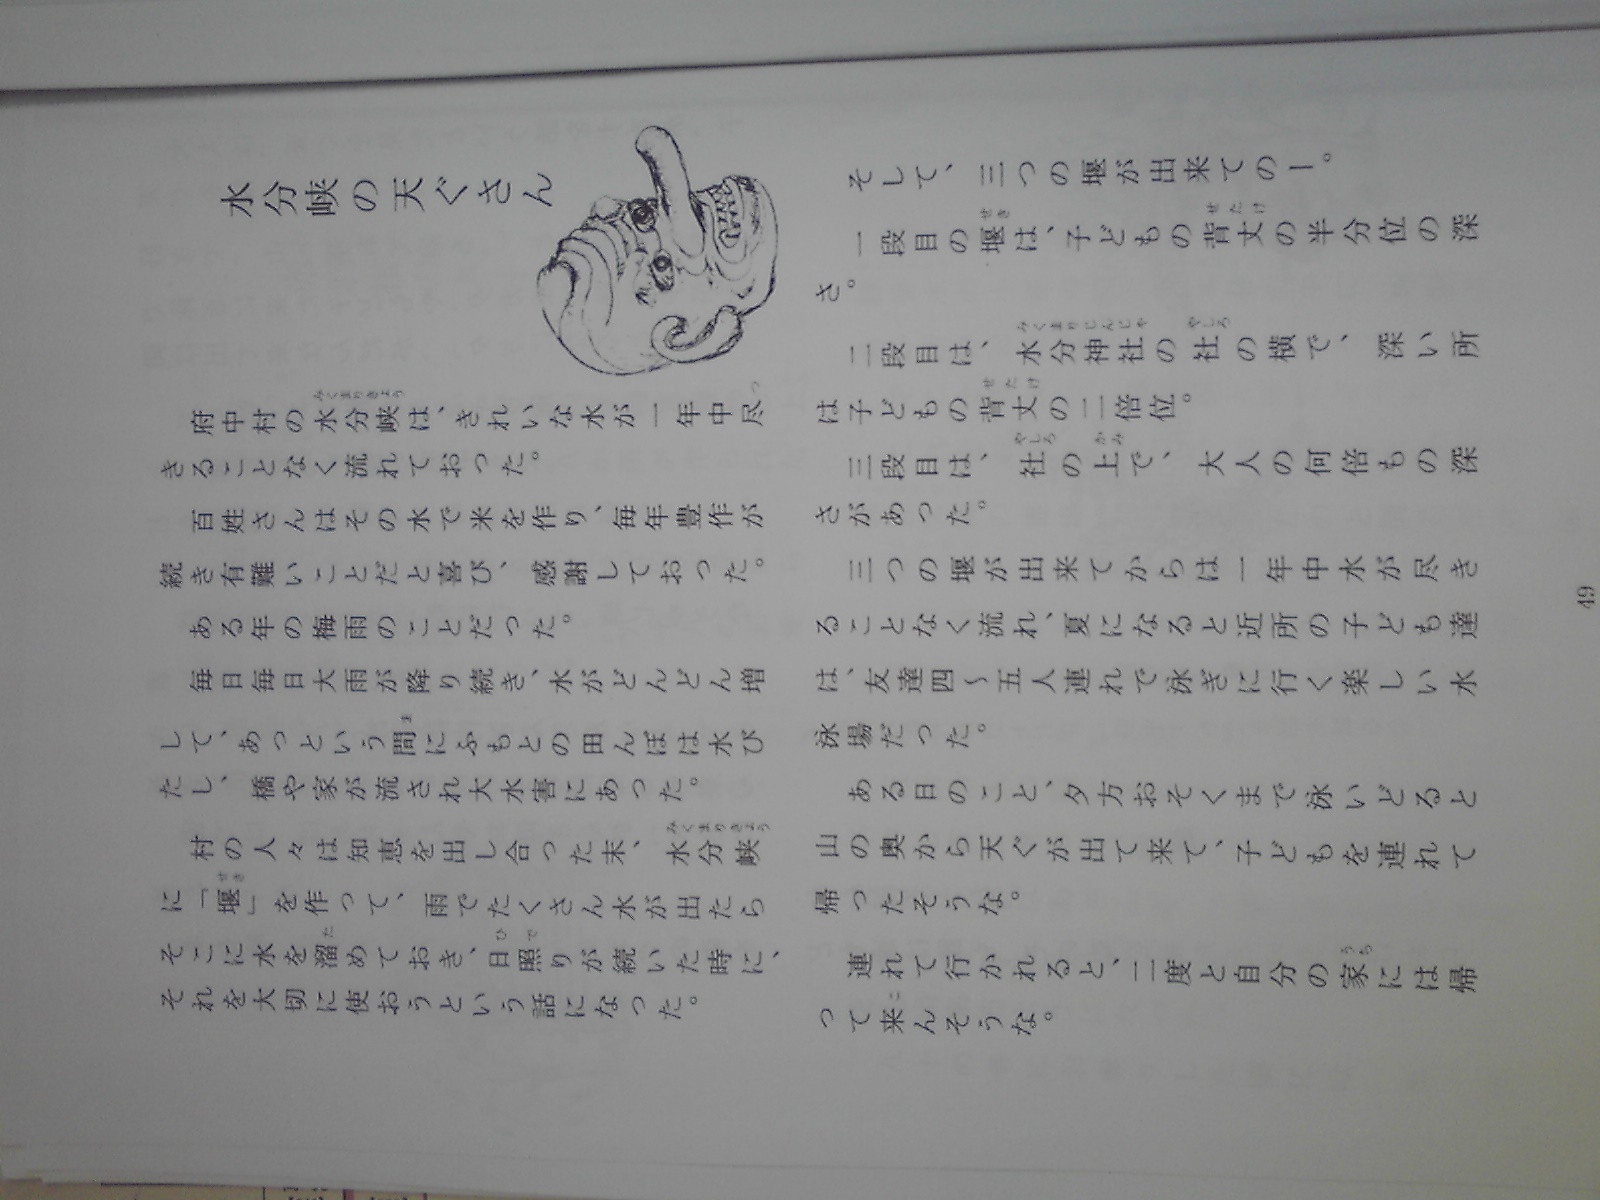 水分峡の天ぐさん
府中村の水分峡は、きれいな水が一年中尽
きることなく流れておった。
百姓さんはその水で米を作り、毎年豊作が
続き有難いことだと喜び、感謝しておった。
ある年の梅雨のことだった。
毎日毎日大雨が降り続き、水がどんどん増
して、あっという間にふもとの田んぼは水び
たし、橋や家が流され大水害にあった。
村の人々は知恵を出し合った末、水分峡
に「堰」を作って、雨でたくさん水が出たら
そこに水を溜めておき、日照りが続いた時に、
それを大切に使おうという話になった。
そして、三つの堰が出来てのー。
一段目の堰は、子どもの背丈の半分位の深
さ。
二段目は、水分神社の社の横で、深い所
は子どもの背丈の二倍位。
三段目は、社の上で、大人の何倍もの深
さがあった。
三つの堰が出来てからは一年中水が尽き
ることなく流れ、夏になると近所の子ども達
は、友達四〜五人連れで泳ぎに行く楽しい水
泳場だった。
ある日のこと、夕方おそくまで泳いどると
山の奥から天ぐが出て来て、子どもを連れて
帰ったそうな。
連れて行かれると、二度と自分の家には帰
って来んそうな。
49